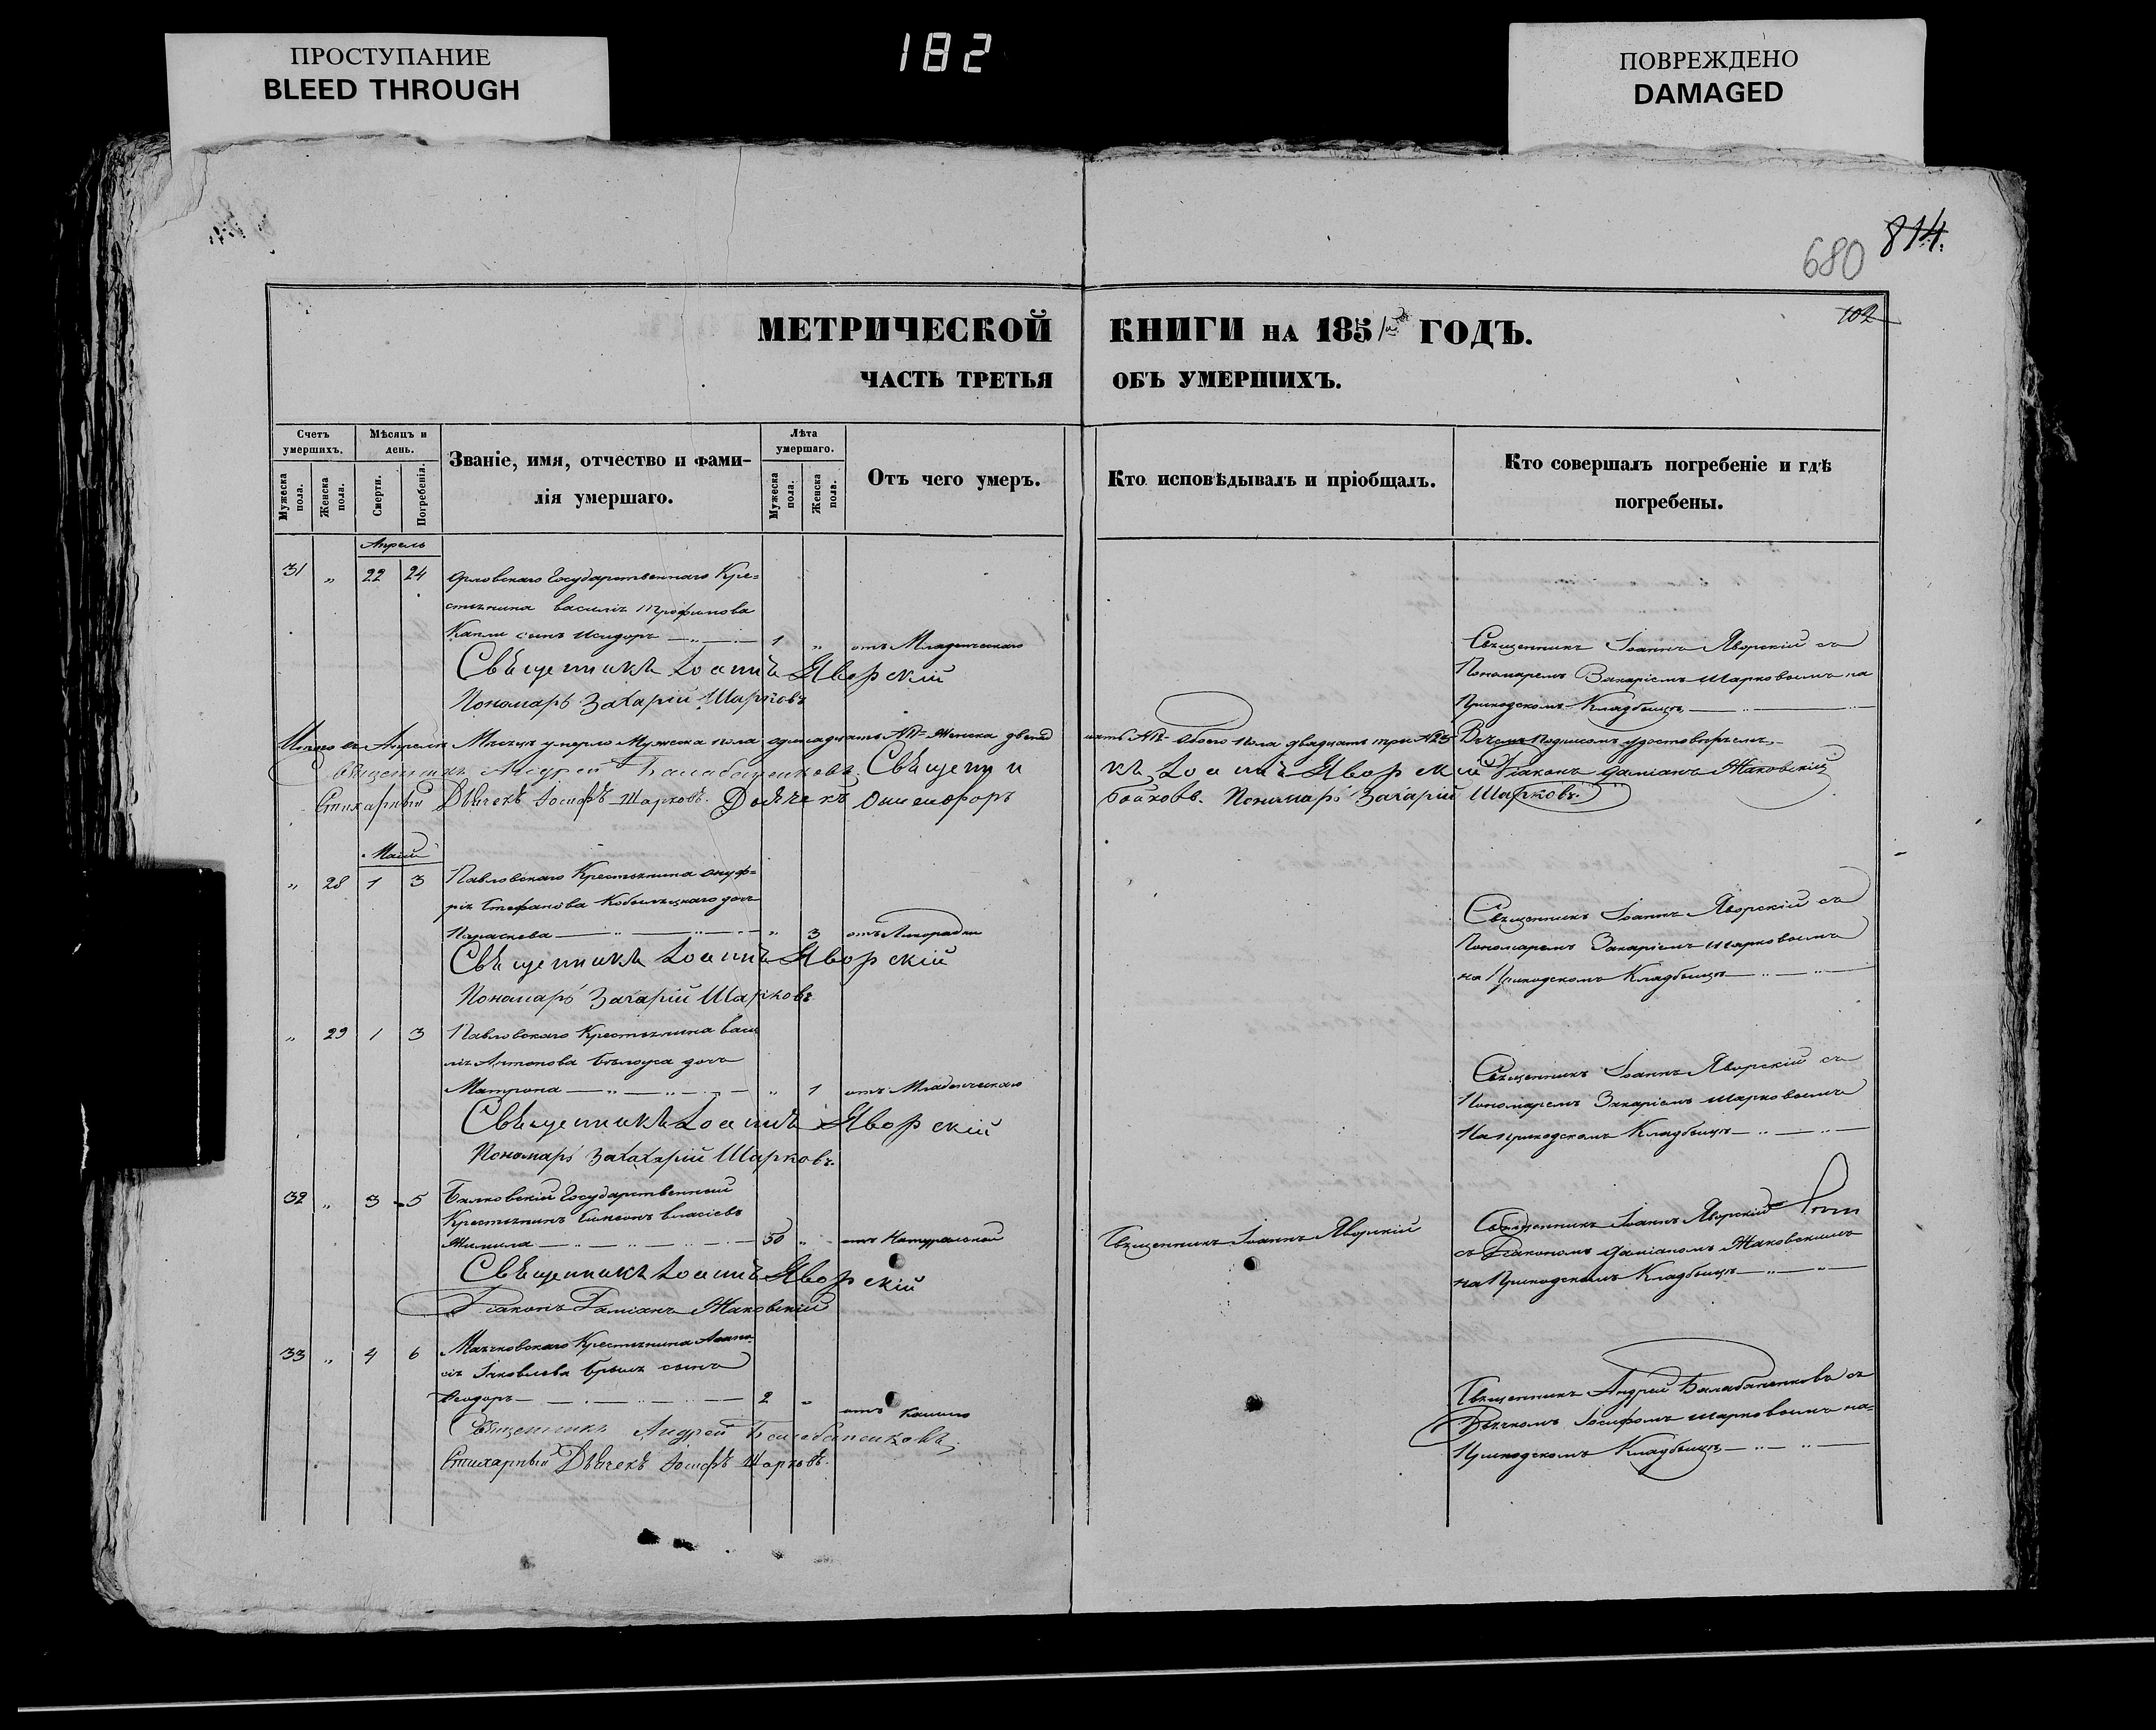 ПРОСТУПАНИЕ
BLEED THROUGH
182
ПОВРЕЖДЕНО
DAMAGED
680
814.
102
МЕТРИЧЕСКОЙ КНИГИ НА 1851 ГОДЪ.
ЧАСТЬ ТРЕТЬЯ ОБЪ УМЕРШИХЪ.
Счетъ умершихъ.
Мужеска пола.
Женска пола.
Мѣсяцъ и день.
Смерти.
Погребенія.
Званіе, имя, отчество и фами-
лія умершаго.
Лѣта умершаго.
Мужеска пола.
Женска пола.
Отъ чего умеръ.
Кто исповѣдывалъ и пріобщалъ.
Кто совершалъ погребеніе и гдѣ
погребены.
Апрель
31 „ 22 24 Орловскаго Государственнаго Кре=
стьянина Василія Трофимова
сынъ Исидоръ 1 „ отъ Младенческаго
Священникъ Іоаннъ Яворскій съ
Пономаремъ Захаріемъ Шарковымъ на
Приходскомъ Кладбищѣ
Священникъ Іоаннъ Яворскій
Пономарь Захарій Шарковъ
Итого въ Апрелѣ Мѣсяцѣ умерло Мужеска пола одинадцать Женска двенад
цать Обоего пола двадцать три №23 Въ чемъ Подписомъ удостовѣряемъ
Священникъ Андрей Балабаненковъ. Священни
къ Іоаннъ Яворскій Діаконъ Даміанъ Маковскій
Стихарный Дьячекъ Іосифъ Шарковъ. Дьячекъ Онисифоръ
Бойковъ. Пономарь Захарій Шарковъ.
Маій
„ 28 1 3 Павловскаго Крестьянина Онуф=
рія Стефанова дочь
Параскева „ 3 отъ Лихорадки
Священникъ Іоаннъ Яворскій съ
Пономаремъ Захаріемъ Шарковымъ
на Приходскомъ Кладбищѣ
Священникъ Іоаннъ Яворскій
Пономарь Захарій Шарковъ
„ 29 1 3 Павловскаго Крестьянина Васи
лія Антонова Бѣлоуса дочь
Матрона „ 1 отъ Младенческаго
Священникъ Іоаннъ Яворскій съ
Пономаремъ Захаріемъ Шарковымъ
На приходскомъ Кладбищѣ
Священникъ Іоаннъ Яворскій
Пономарь Захарій Шарковъ.
32 „ 3 5 Государственный
Крестьянинъ Симеонъ Власіевъ
50 „ отъ Натуральной
Священникъ Іоаннъ Яворскій
Священникъ Іоаннъ Яворскій
съ Діакономъ Даміаномъ Маковскимъ
на Приходскомъ Кладбищѣ
Священникъ Іоаннъ Яворскій
Діаконъ Даміанъ Маковскій
33 „ 4 6 Крестьянина Аѳана
сія Яковлева сынъ
Ѳеодоръ 2 „ отъ Кашлю
Священникъ Андрей Балабаненковъ съ
Дьячкомъ Іосифомъ Шарковымъ на=
Приходскомъ Кладбищѣ
Священникъ Андрей Балабаненковъ
Стихарный Дьячекъ Іосифъ Шарковъ.